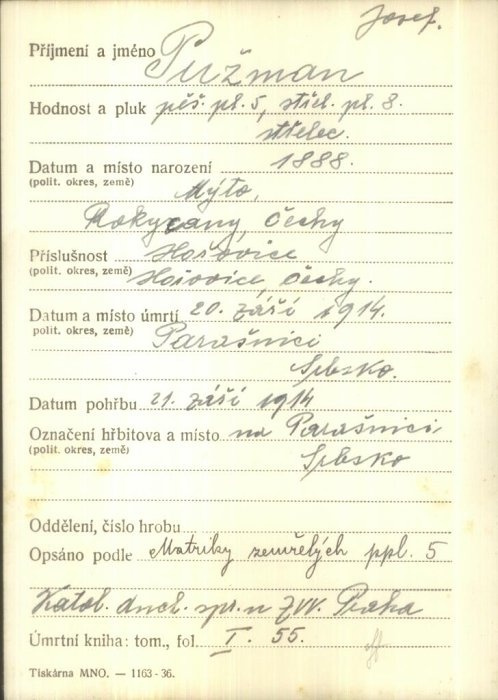 Josef.
Příjmení a jméno Pužman
Hodnost a pluk pěš. pl. 5, střel. pl. 8.
střelec.
Datum a místo narození 1888.
(polit. okres, země) Mýto,
Rokycany, Čechy
Příslušnost Hořovice
(polit. okres, země) Hořovice, Čechy.
Datum a místo úmrtí 20. září 1914.
polit. okres, země) Parašnici
Srbsko.
Datum pohřbu 21. září 1914
Označení hřbitova a místo na Parašnici
(polit. okres, země) Srbsko
Oddělení, číslo hrobu
Opsáno podle Matriky zemřelých ppl. 5
Katol. duch. spr. u ZVV. Praha
Úmrtní kniha: tom., fol. I. 55.
Tiskárna MNO. — 1163-36.